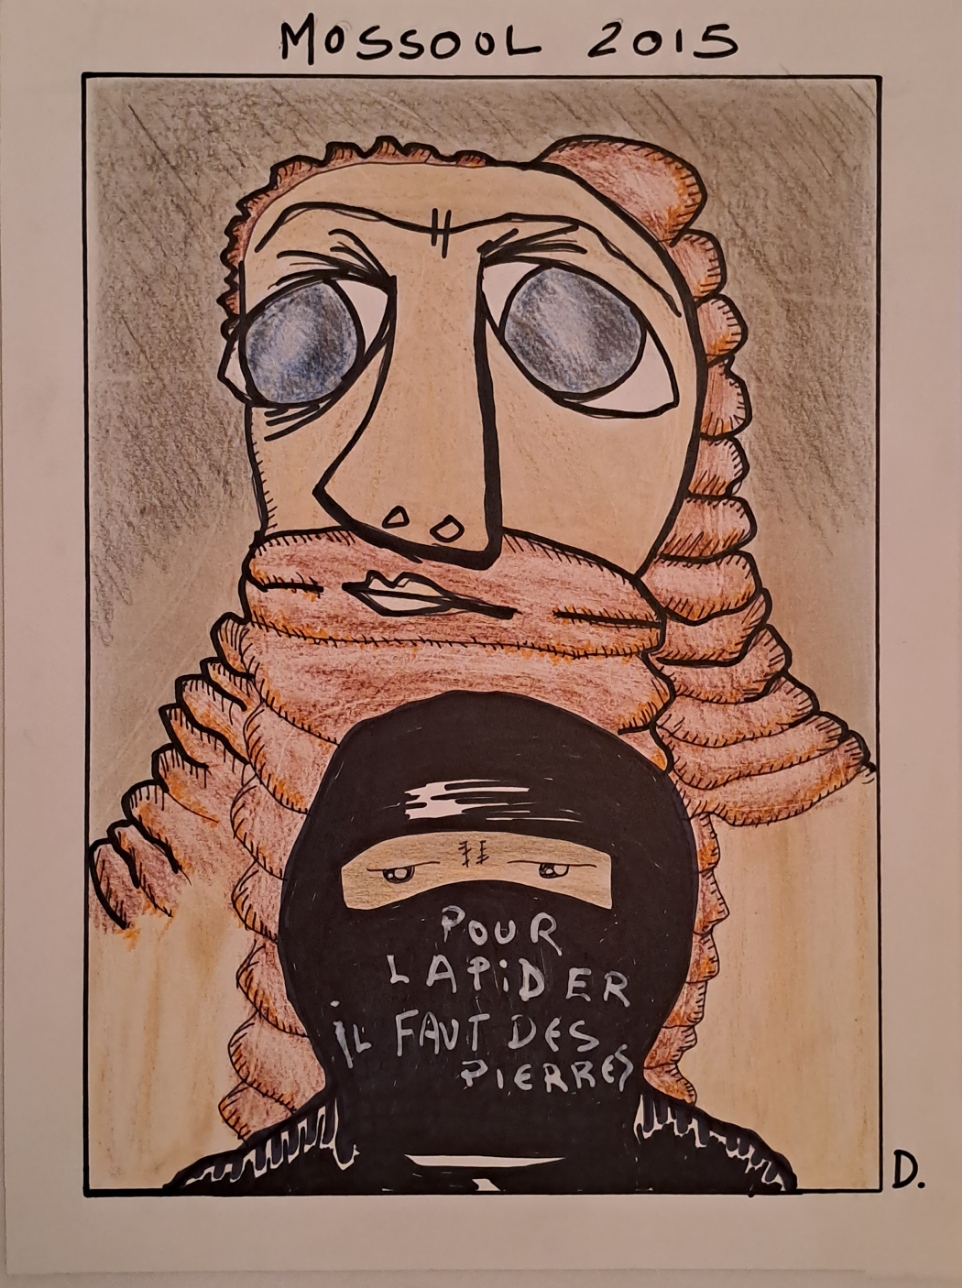 MOSSOUL 2015
POUR
LAPiDER
iL FAUT DES
PIERRES
D.